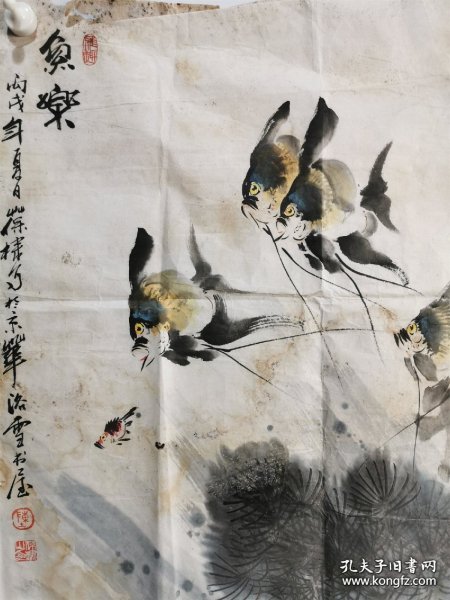 魚樂
丙戌年夏日葆棣寫於京華洛雪書屋
孔夫子旧书网
www.kongfz.com